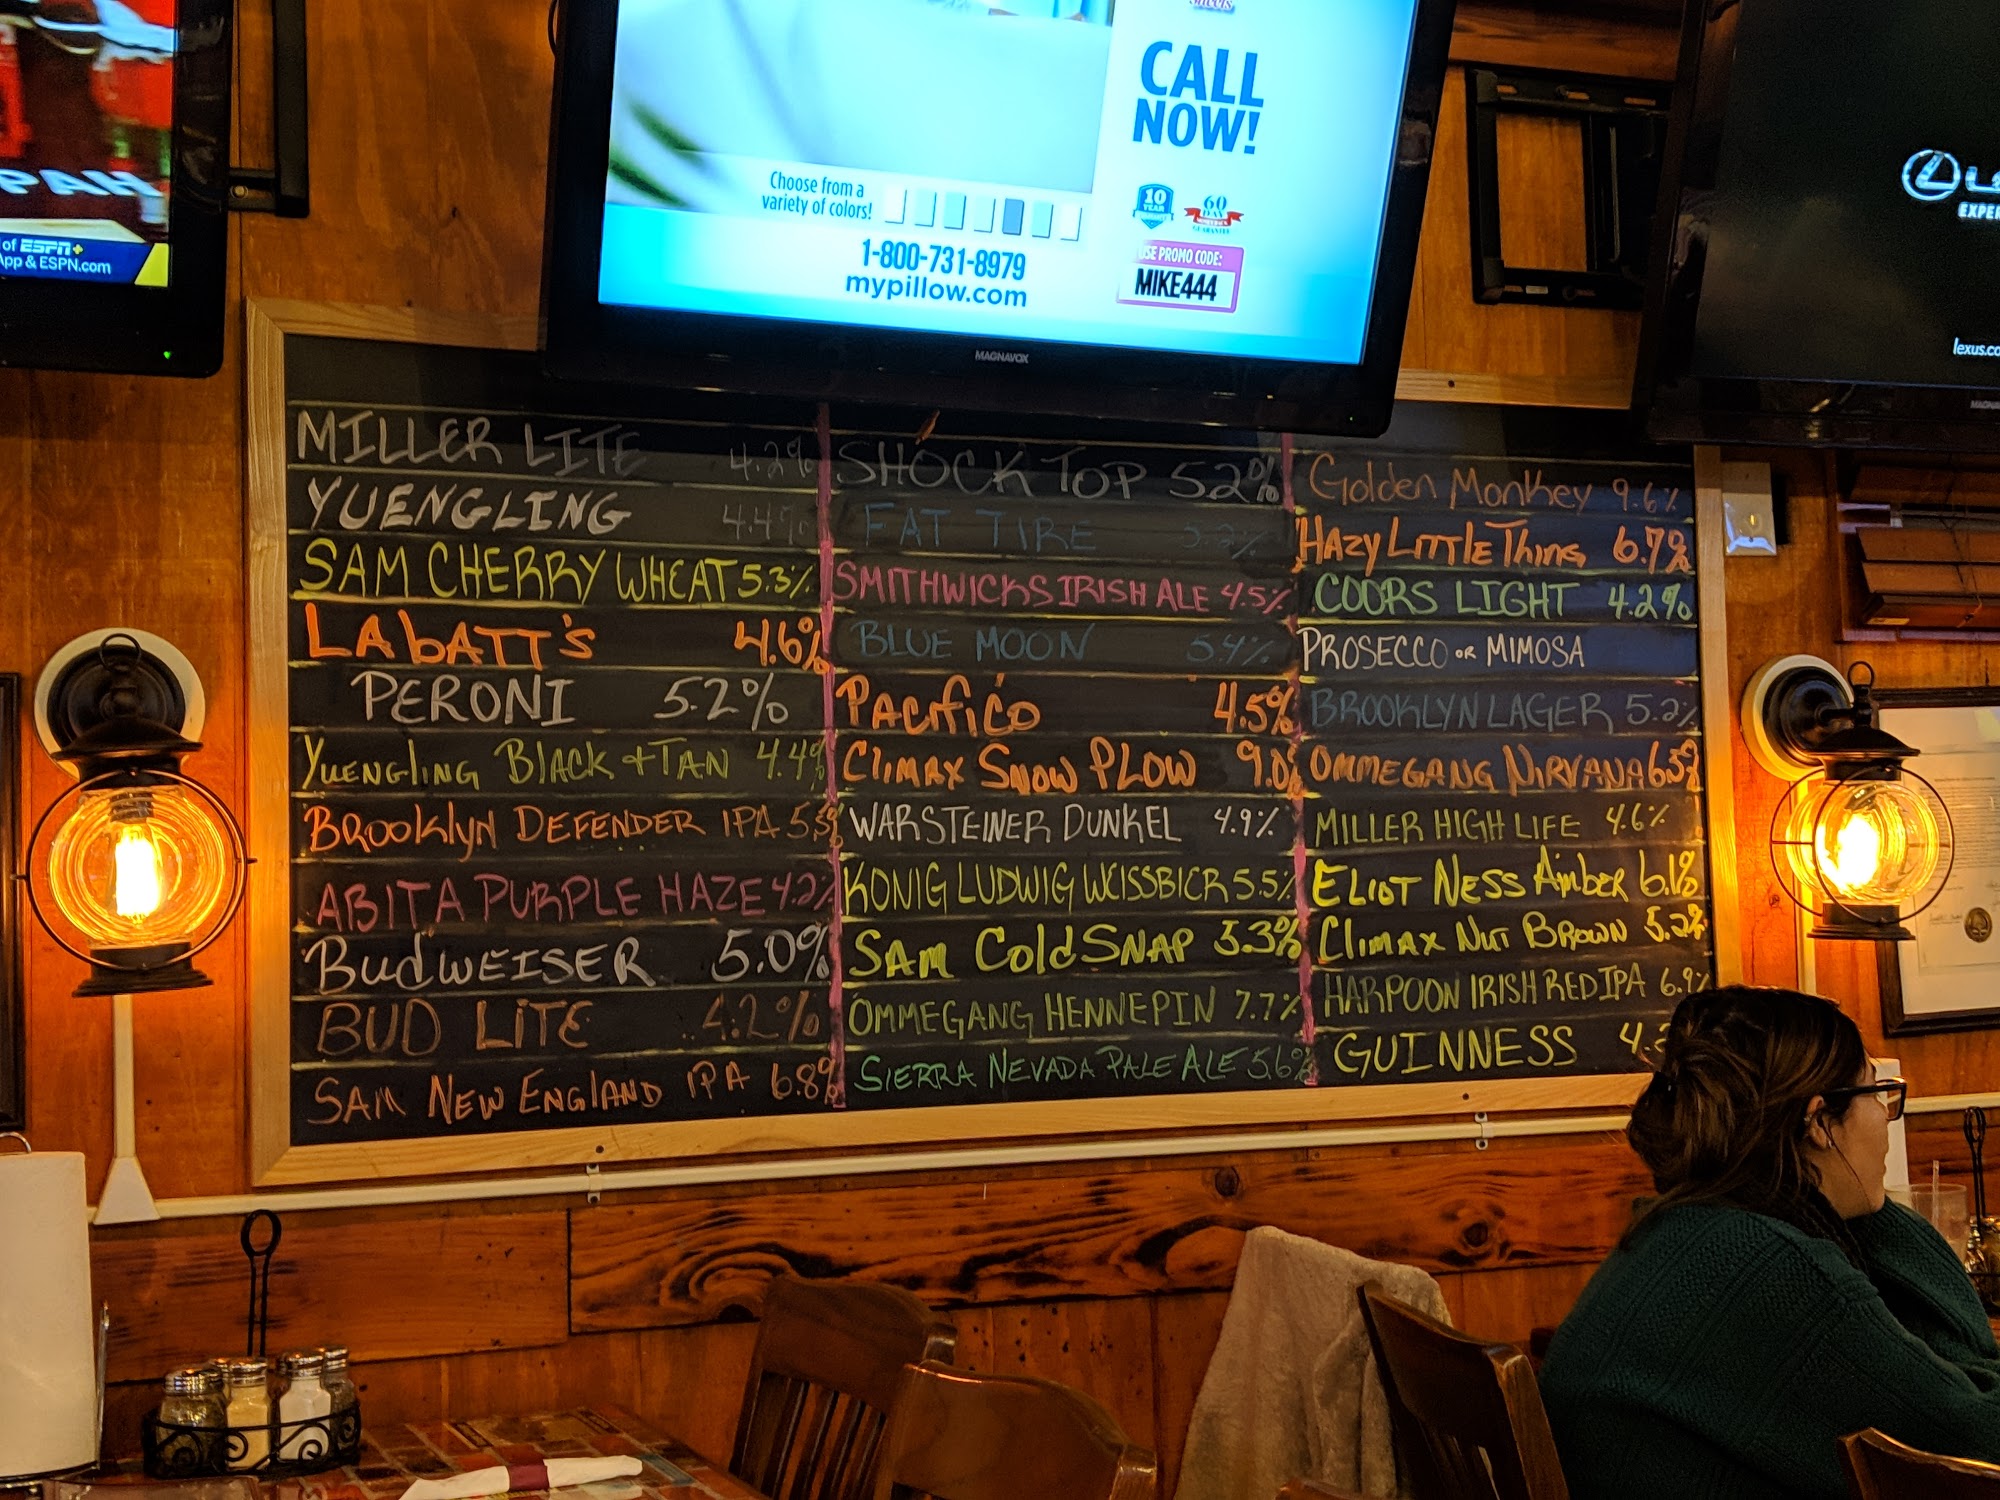 PAH
of ESPN+
App & ESPN.com
CALL
NOW!
Choose from a
variety of colors!
10
YEAR
60
DAY
1-800-731-8979
mypillow.com
USE PROMO CODE:
MIKE444
MAGNAVOX
EXPER
lexus.co
MILLER LITE 4.2%
YUENGLING 4.4%
SAM CHERRY WHEAT 5.3%
LABATT'S 4.6%
PERONI 5.2%
YUENGLING BLACK + TAN 4.4%
BROOKLYN DEFENDER IPA 5.5%
ABITA PURPLE HAZE 4.2%
BUDWEISER 5.0%
BUD LITE 4.2%
SAM NEW ENGLAND IPA 6.8%
SHOCK TOP 5.2%
FAT TIRE 5.2%
SMITHWICKS IRISH ALE 4.5%
BLUE MOON 5.4%
PACIFICO 4.5%
CLIMAX SNOW PLOW 9.0%
WARSTEINER DUNKEL 4.9%
KONIG LUDWIG WEISSBIER 5.5%
SAM COLD SNAP 5.3%
OMMEGANG HENNEPIN 7.7%
SIERRA NEVADA PALE ALE 5.6%
Golden Monkey 9.6%
HAZY LITTLE THING 6.7%
COORS LIGHT 4.2%
PROSECCO OR MIMOSA
BROOKLYN LAGER 5.2%
OMMEGANG NIRVANA 6.5%
MILLER HIGH LIFE 4.6%
ELIOT NESS AMBER 6.1%
CLIMAX NUT BROWN 5.2%
HARPOON IRISH RED IPA 6.9%
GUINNESS 4.2